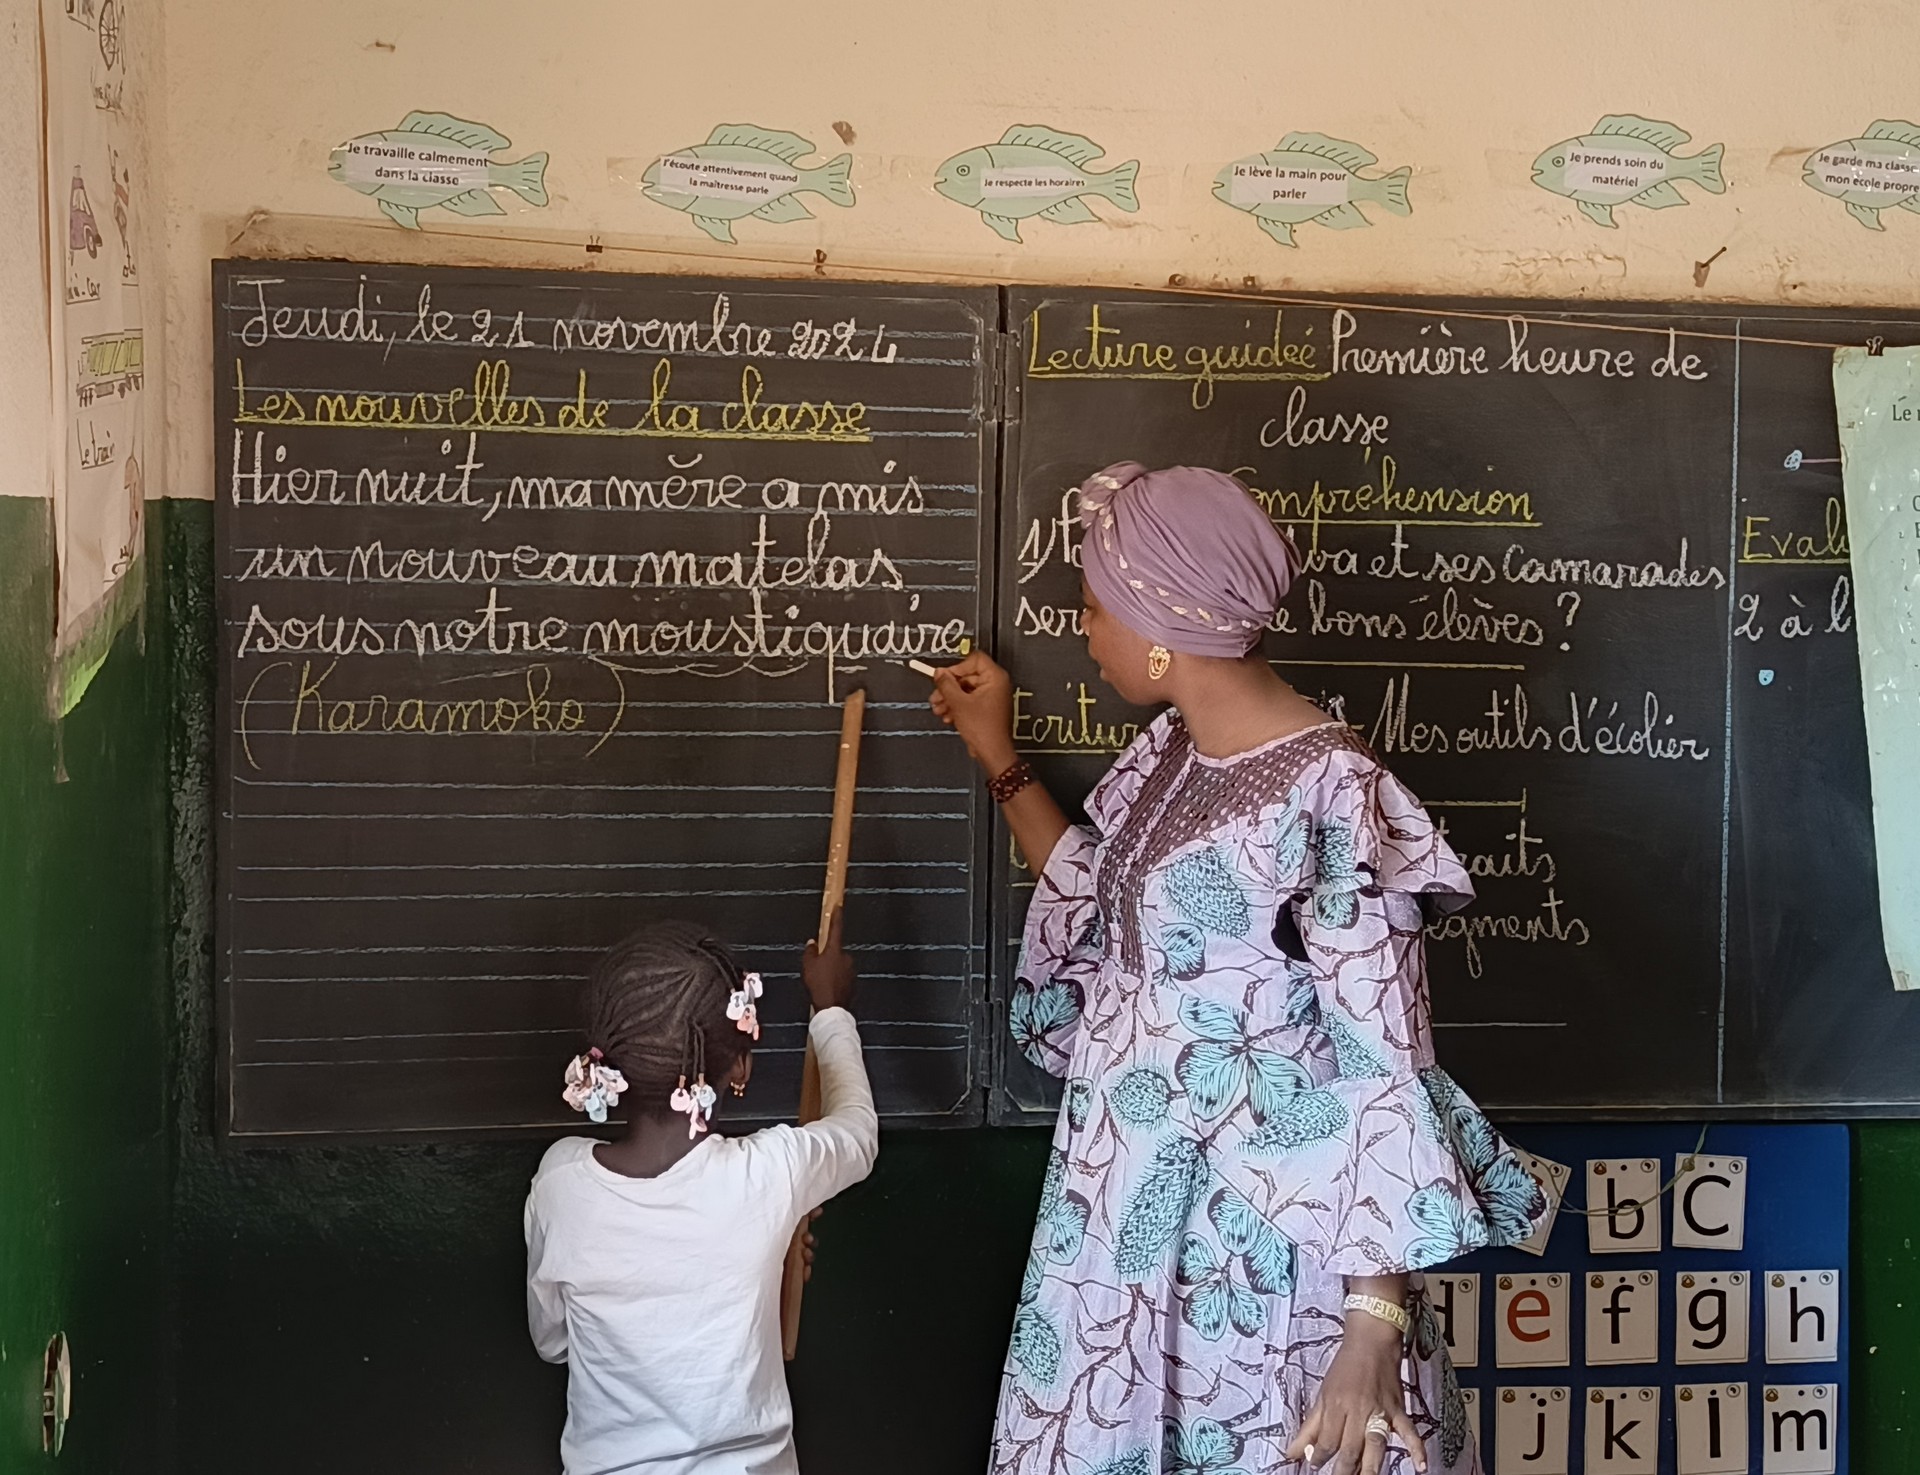 Je travaille calmement
dans la classe
J'écoute attentivement quand
la maîtresse parle
Je respecte les horaires
Je lève la main pour
parler
Je prends soin du
matériel
Je garde ma classe
mon école propre
Jeudi, le 21 novembre 2024
Les nouvelles de la classe
Hier nuit, ma mère a mis
un nouveau matelas
sous notre moustiquaire.
(Karamoko)
Lecture guidée Première heure de
classe
Compréhension
1) ba et ses camarades
bons élèves ?
Mes outils d'écolier
2 à
Le train
b C
d e f g h
j k l m